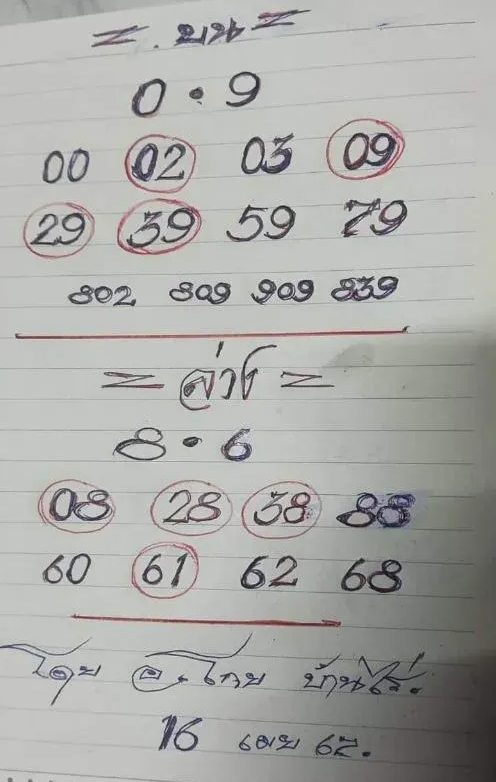 = บน =
0 • 9
00 02 03 09
29 39 59 79
802 809 909 839
= ล่าง =
8 • 6
08 28 38 88
60 61 62 68
โดย อ. โกย บ้านไร่.
16 เมย 62.